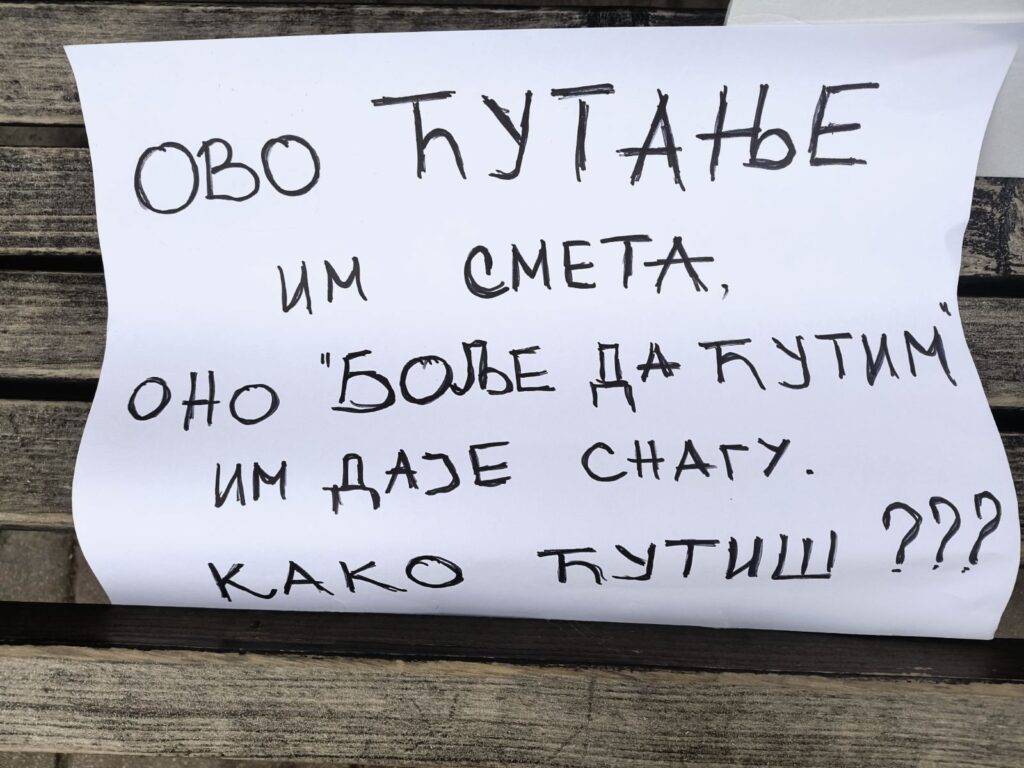 ОВО ЋУТАЊЕ
ИМ СМЕТА,
ОНО "БОЉЕ ДА ЋУТИМ"
ИМ ДАЈЕ СНАГУ.
КАКО ЋУТИШ ???